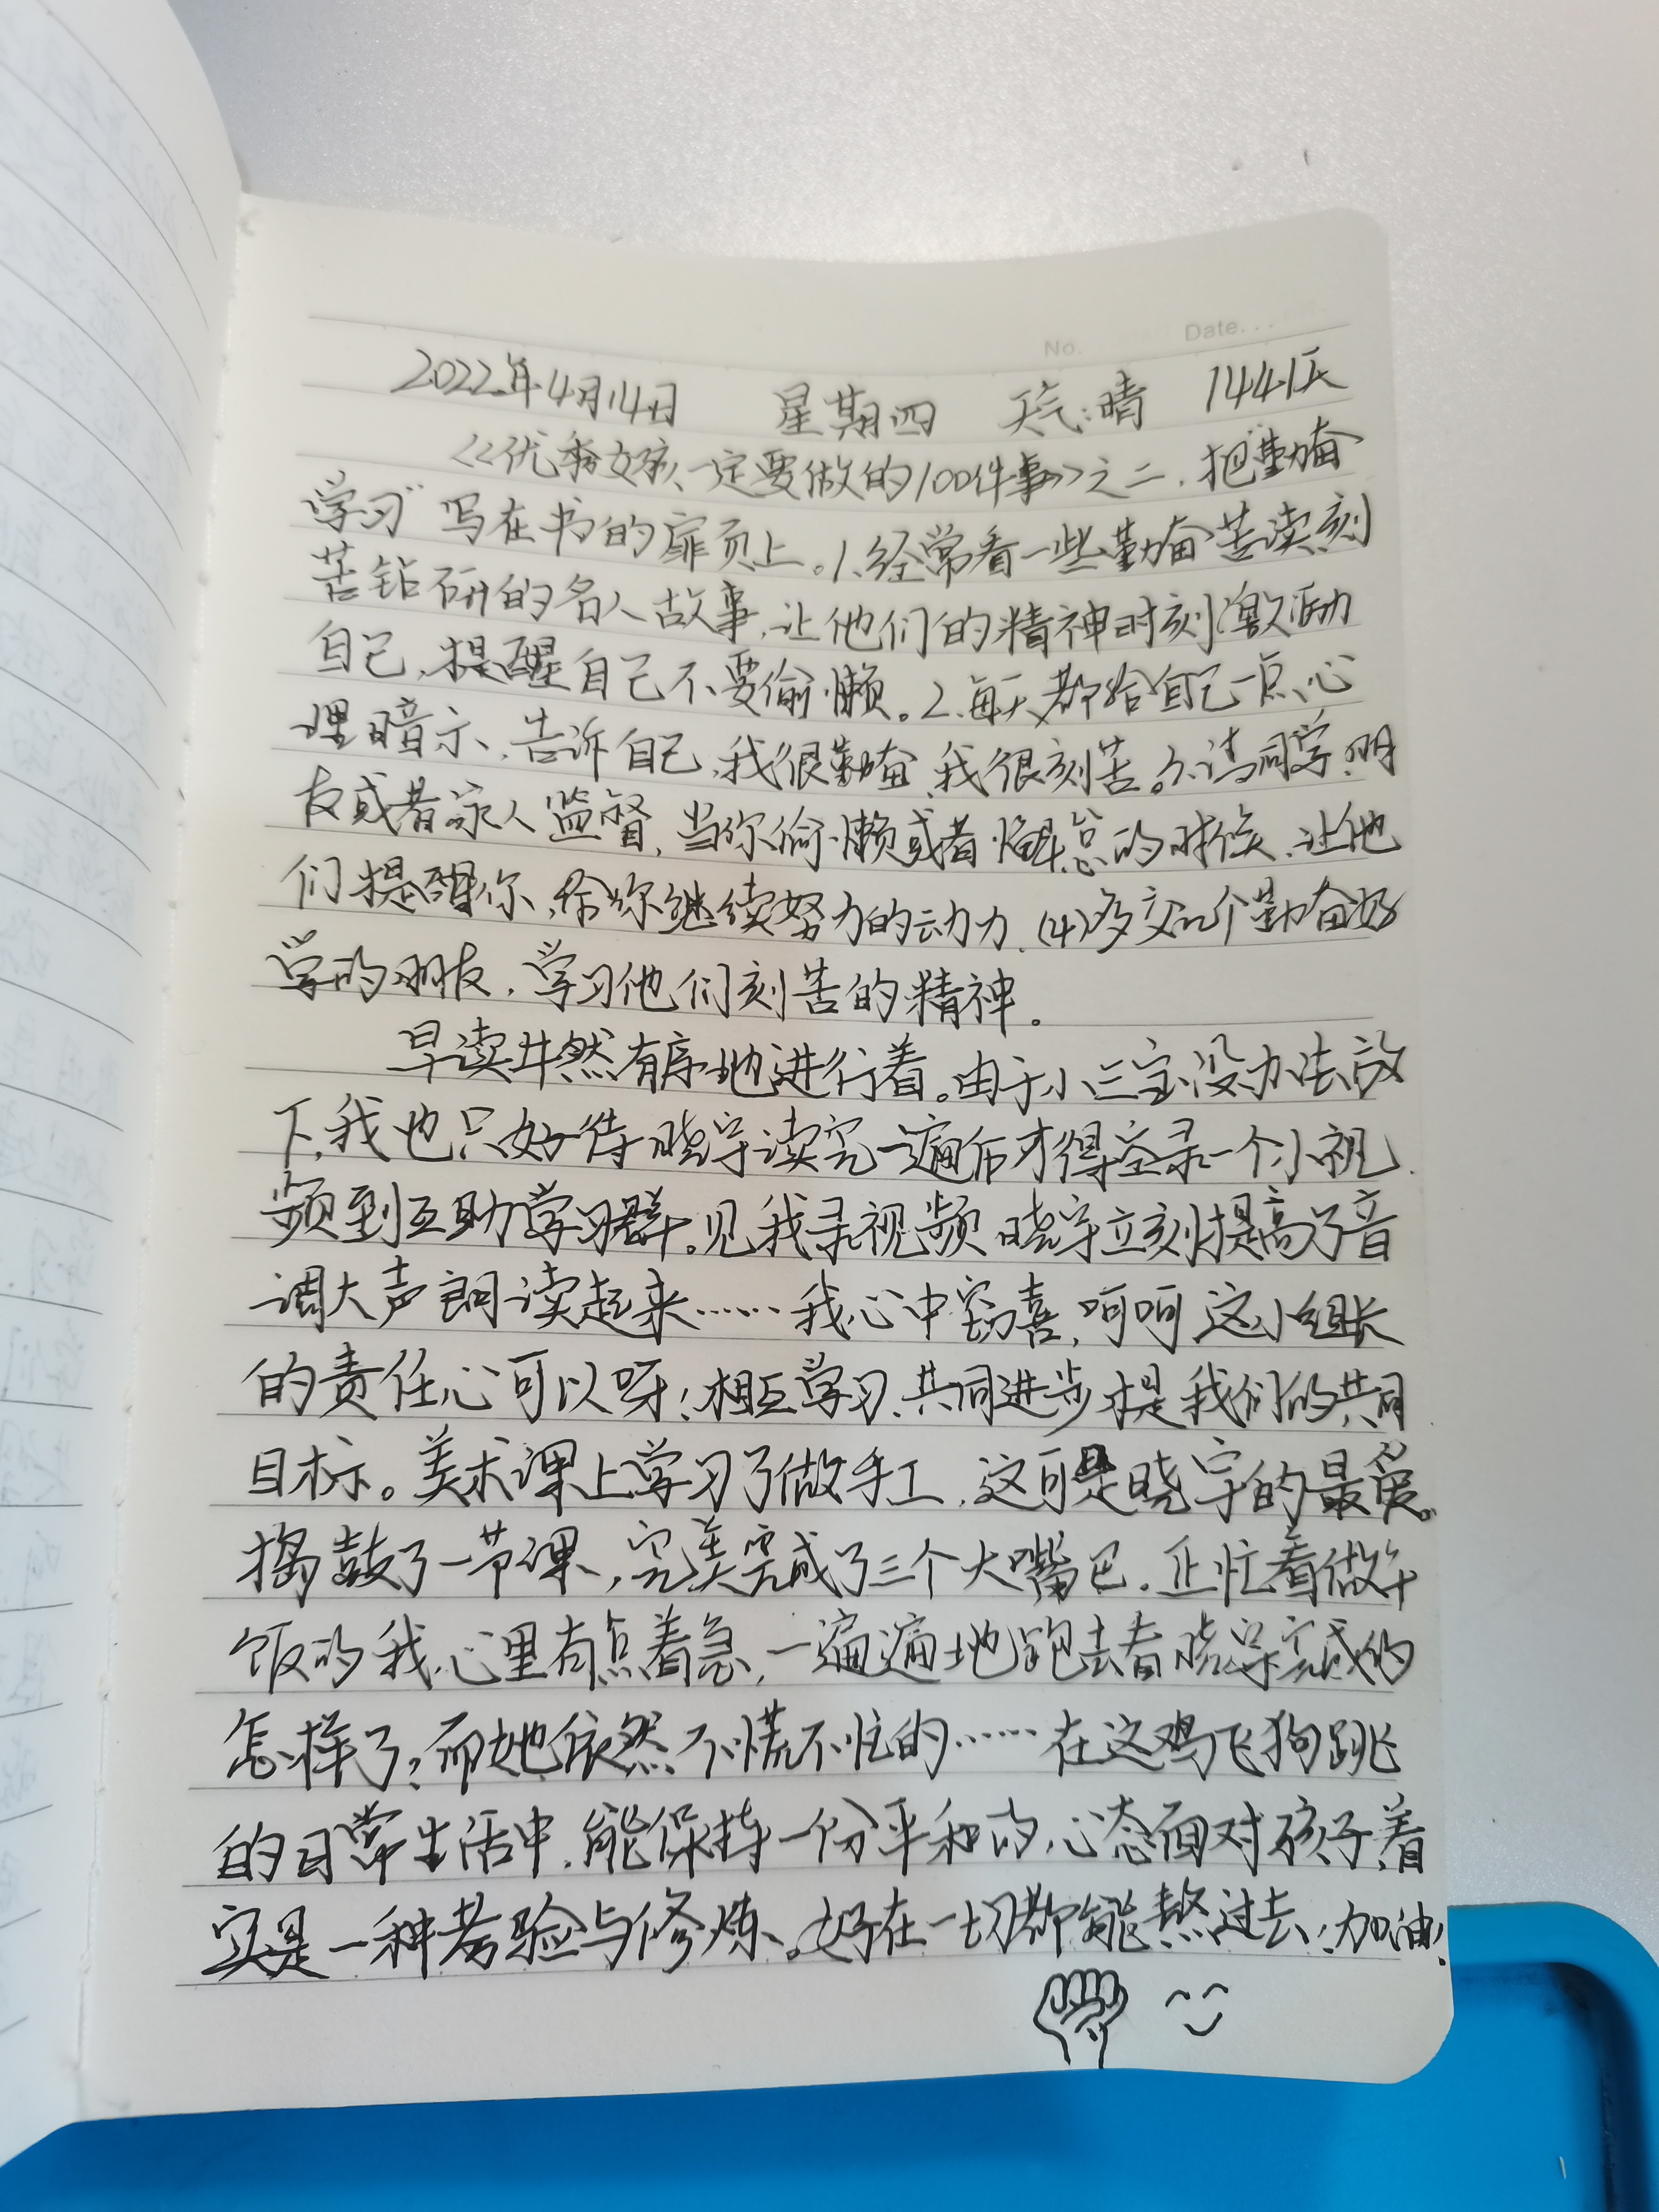 No. Date
2022年4月14日 星期四 天气:晴 1441天
《优秀女孩一定要做的100件事》之二、把“勤奋
学习”写在书的扉页上。1、经常看一些勤奋苦读刻
苦钻研的名人故事,让他们的精神时刻激励
自己,提醒自己不要偷懒。2、每天都给自己一点心
理暗示,告诉自己,我很勤奋,我很刻苦。3、请同学、朋
友或者家人监督,当你偷懒或者懈怠的时候,让他
们提醒你,给你继续努力的动力。(4)多交几个勤奋好
学的朋友,学习他们刻苦的精神。
早读井然有序地进行着。由于小三宝没办法放
下,我也只好待晓宇读完一遍后才得空录一个小视
频到互助学习群。见我录视频,晓宇立刻提高了音
调大声朗读起来……我心中窃喜,呵呵,这小组长
的责任心可以呀!相互学习、共同进步才是我们的共同
目标。美术课上学习了做手工,这可是晓宇的最爱。
捣鼓了一节课,完美完成了三个大嘴巴。正忙着做午
饭的我,心里有点着急,一遍遍地跑去看晓宇完成的
怎样了?而她依然不慌不忙的……在这鸡飞狗跳
的日常生活中,能保持一份平和的心态面对孩子,着
实是一种考验与修炼。好在一切都能熬过去!加油!